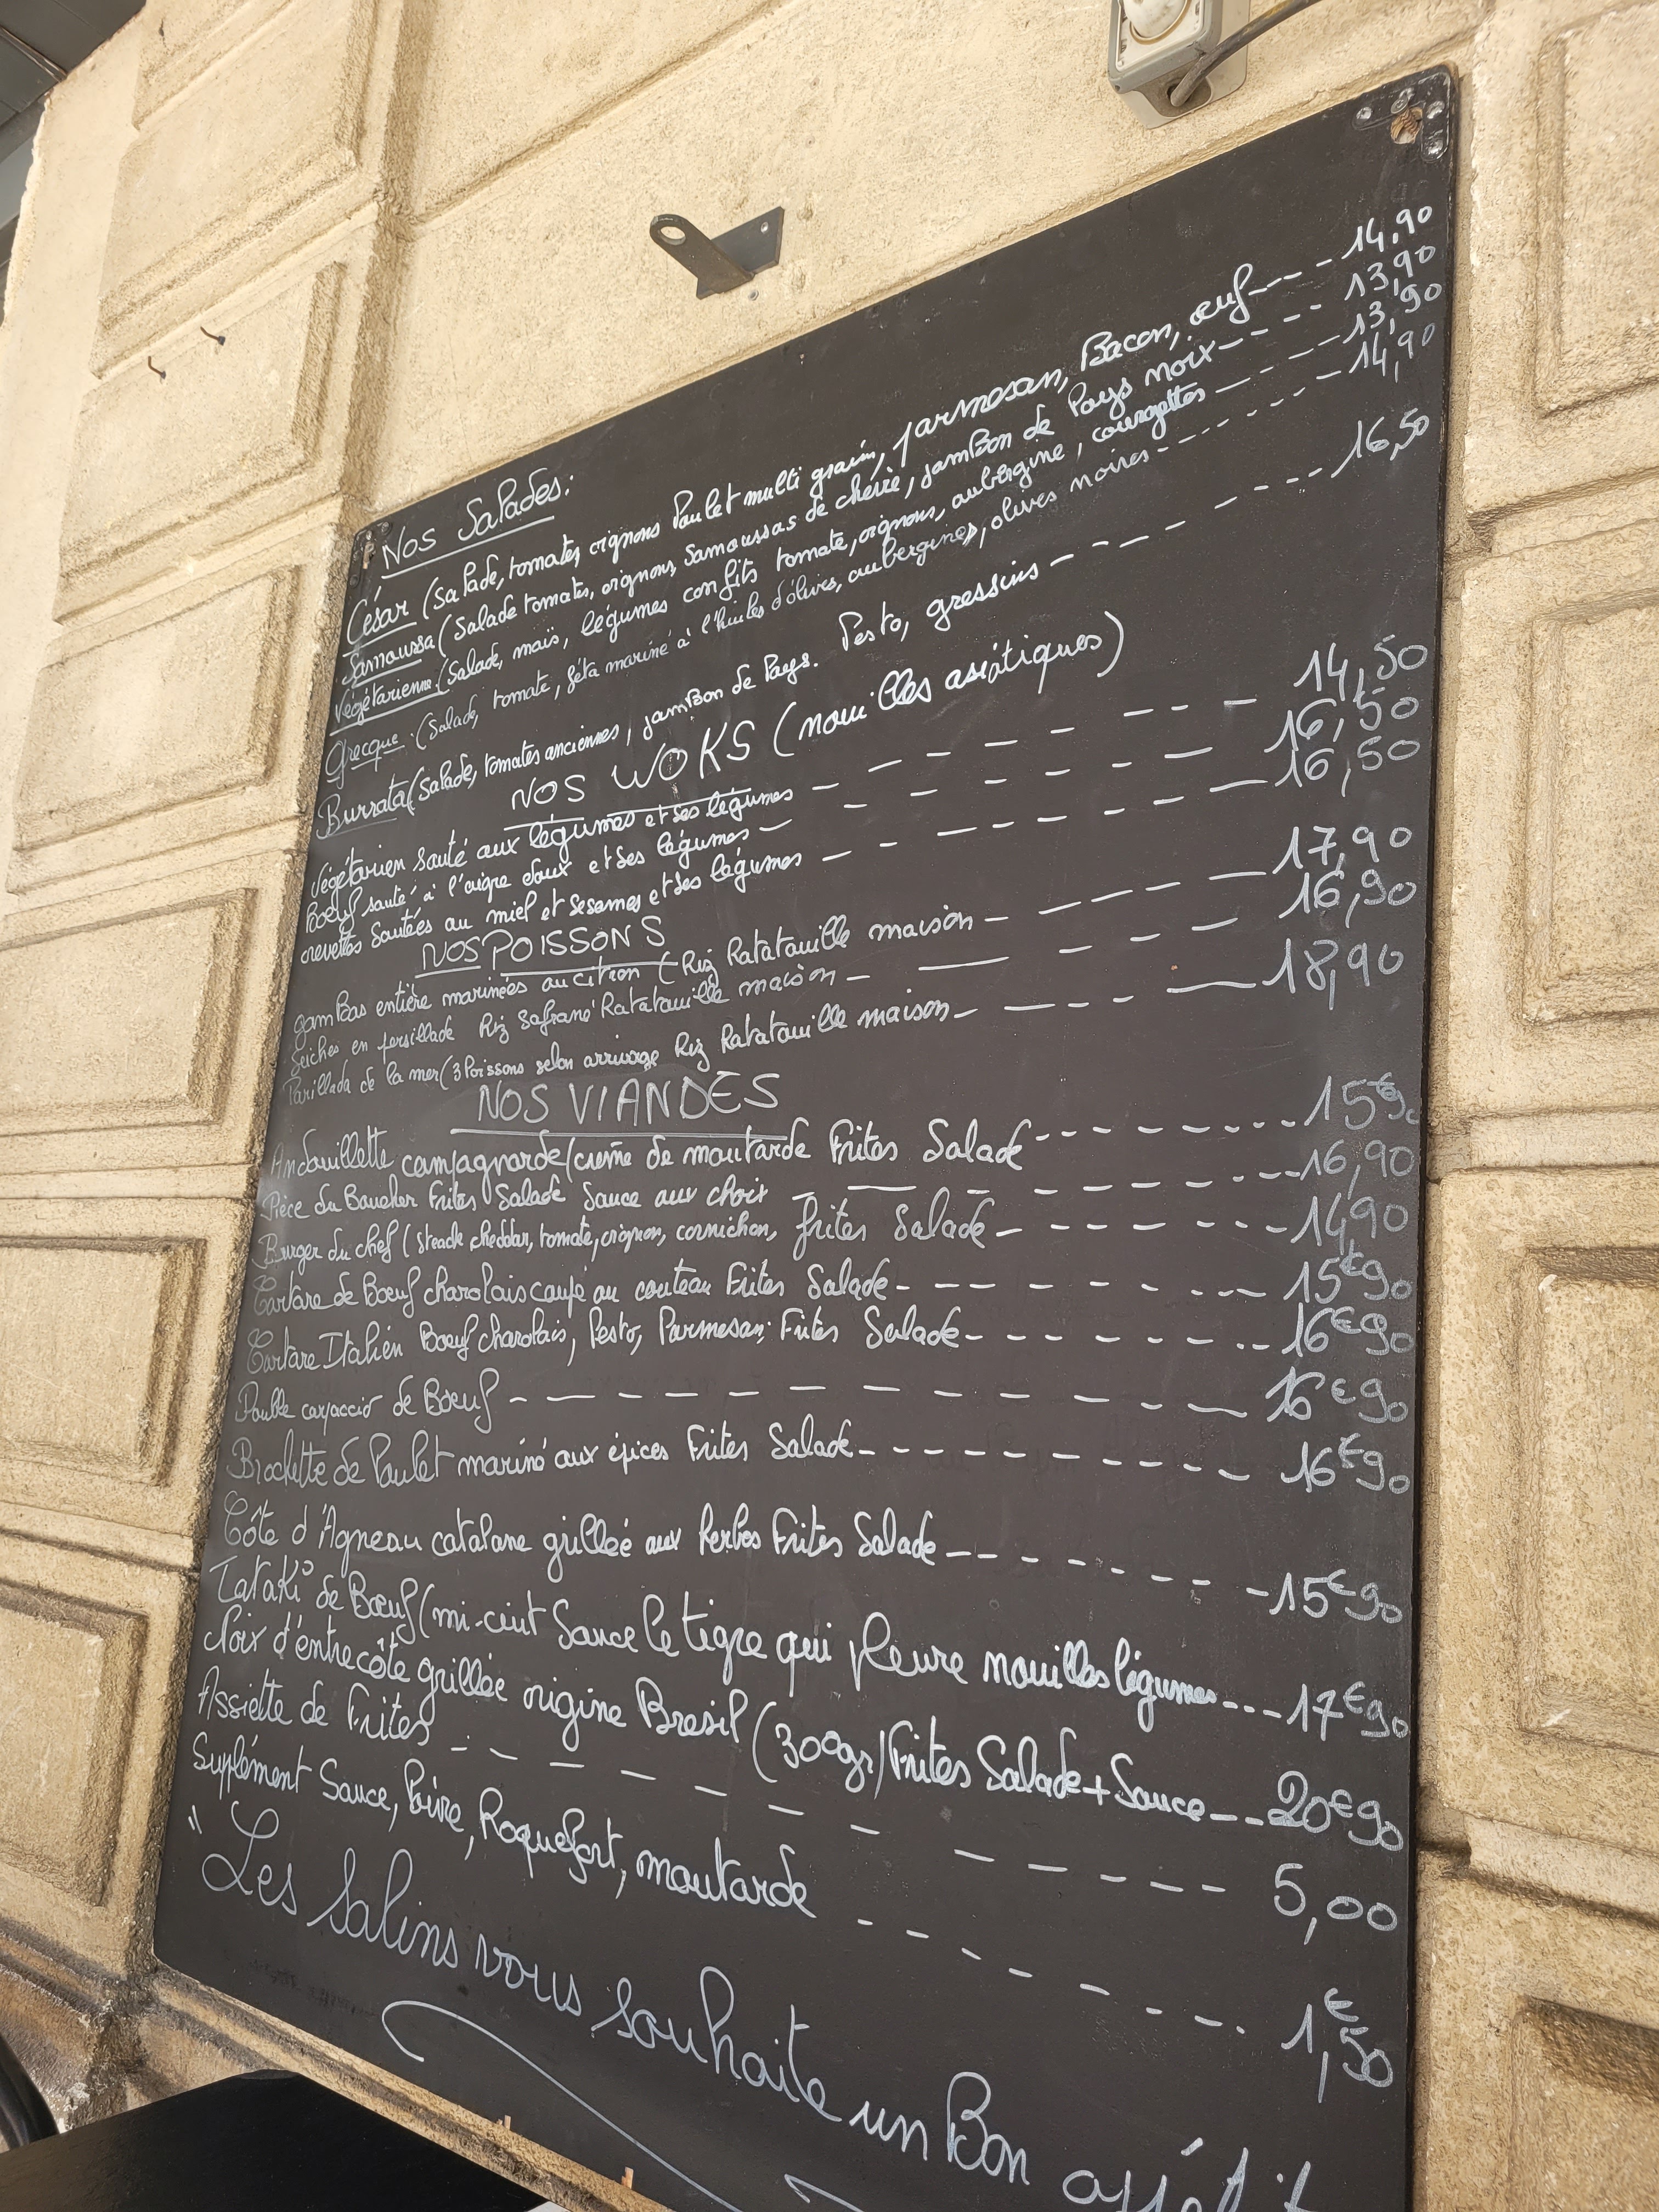 Nos Salades:
César (Salade, tomates, oignons Poulet multi grain, parmesan, Bacon, œuf---- 14,90
Samoussa (Salade tomates, oignons, Samoussas de chèvre, jamBon de Pays noix---- 13,90
Végétarienne (Salade, maïs, légumes confits tomate, oignons, aubergine, courgettes---- 13,90
Grecque (Salade, tomate, féta mariné à l'huiles d'olives, aubergines, olives noires---- 14,90
Burrata (Salade, tomates anciennes, jamBon de Pays. Pesto, gressins---- 16,50
NOS WOKS (nouilles asiatiques)
Végétarien sauté aux légumes et ses légumes---- 14,50
Boeuf sauté à l'aigre doux et ses légumes---- 16,50
crevettes Sautées au miel et sesames et ses légumes---- 16,50
NOS POISSONS
gamBas entière marinées au citron (Riz Ratatouille maison---- 17,90
Seiches en persillade Riz Safrané Ratatouille maison---- 16,90
Parillada de la mer (3 Poissons selon arrivage Riz Ratatouille maison---- 18,90
NOS VIANDES
Andouillette campagnarde (crème de moutarde Frites Salade---- 15€90
Pièce du Boucher Frites Salade Sauce aux choix---- 16,90
Burger du chef (Steack cheddar, tomate, oignon, cornichon, frites Salade---- 14,90
Tartare de Boeuf charolais coupé au couteau Frites Salade---- 15€90
Tartare Italien Boeuf charolais, Pesto, Parmesan, Frites Salade---- 16€90
Double carpaccio de Boeuf---- 16€90
Brochette de Poulet mariné aux épices Frites Salade---- 16€90
Côte d'Agneau catalane grillée aux herbes Frites Salade---- 15€90
Tataki de Boeuf (mi-cuit Sauce le tigre qui pleure nouilles légumes---- 17€90
Noix d'entrecôte grillée origine Bresil (300gr) Frites Salade + Sauce---- 20€90
Assiette de Frites---- 5,00
Suplément Sauce, Poivre, Roquefort, moutarde---- 1€,50
"Les Salins vous souhaite un Bon appétit